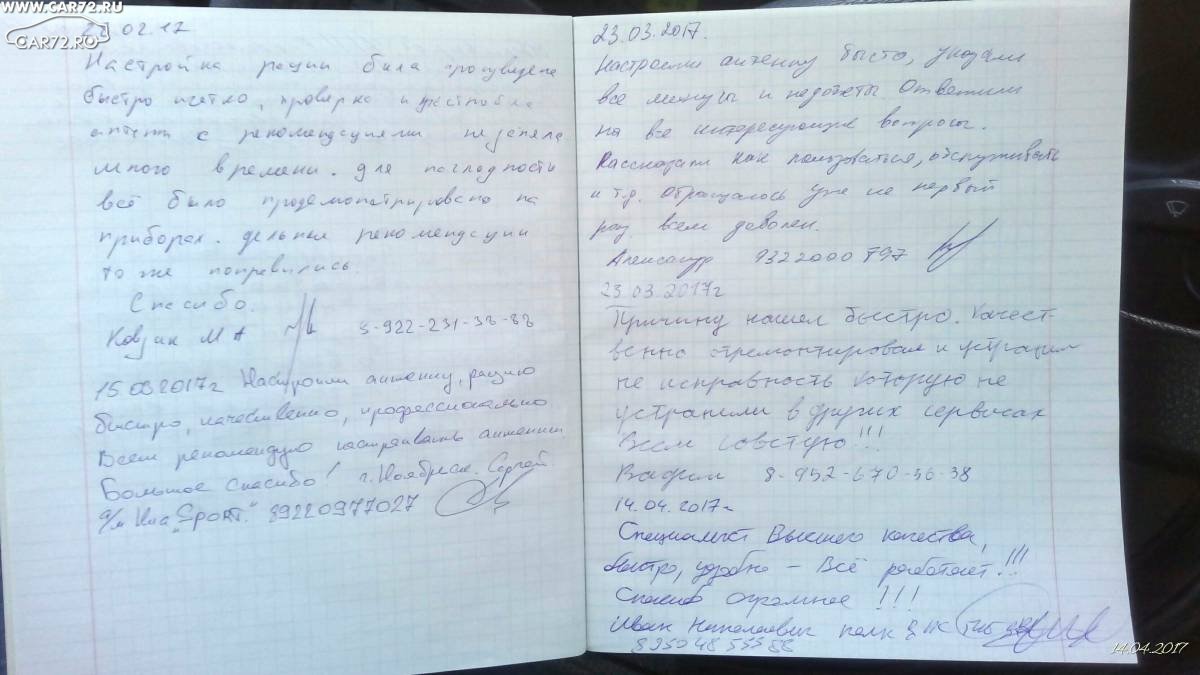 WWW.CAR72.RU
CAR72.RU
02.17
Настройка рации была произведена
быстро и четко, проверка и
антенн с рекомендациями не заняла
много времени. Для наглядность
всё было продемонстрировано на
приборах. дельные рекомендации
то же понравились.
Спасибо.
М А 3-922-231-38-88
15 03 2017г Настроили антенну, рацию
быстро, качественно, профессионально.
Всем рекомендую настраивать антенны.
Большое спасибо! г. Ноябрьск. Сергей
а/м Киа „Sport." 89220977027
23.03.2017.
Настроили антенну быстро, указали
все минусы и недочеты Ответили
на все интересующие вопросы.
Рассказали как пользоваться, обслуживать
и т.д. обращаюсь уже не первый
раз, всем доволен.
Александр 9322000797
23.03.2017г
Причину нашел быстро. Качест-
венно отремонтировал и устранил
не исправность которую не
устранили в других сервисах
Всем советую!!!
Вадим 8-952-670-36-38
14.04.2017г
Специалист Высшего качества,
быстро, удобно – Всё работает!!!
Спасибо огромное!!!
Иван Николаевич
14.04.2017